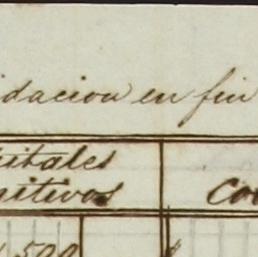 idacion en fin
itales
nitivos
Co
500